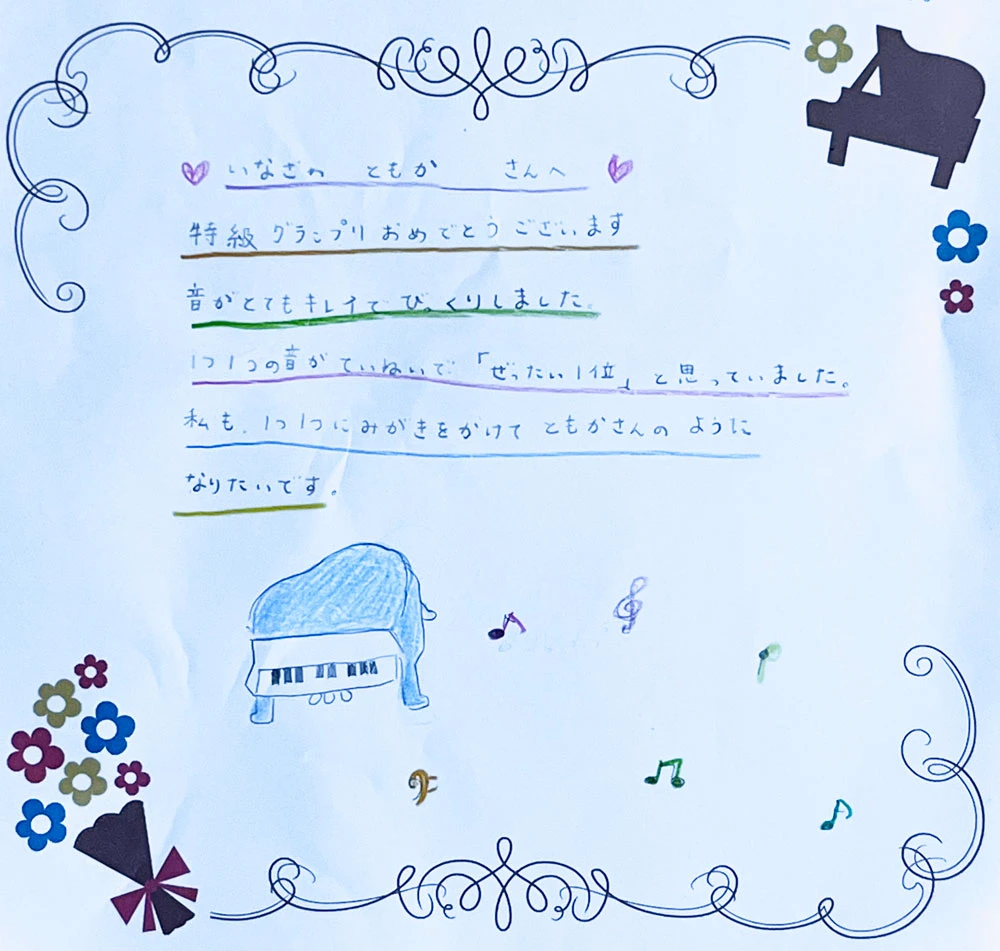 いなざわ ともか さんへ
特級グランプリおめでとうございます
音がとてもキレイでびっくりしました。
1つ1つの音がていねいで「ぜったい1位」と思っていました。
私も、1つ1つにみがきをかけてともかさんのように
なりたいです。